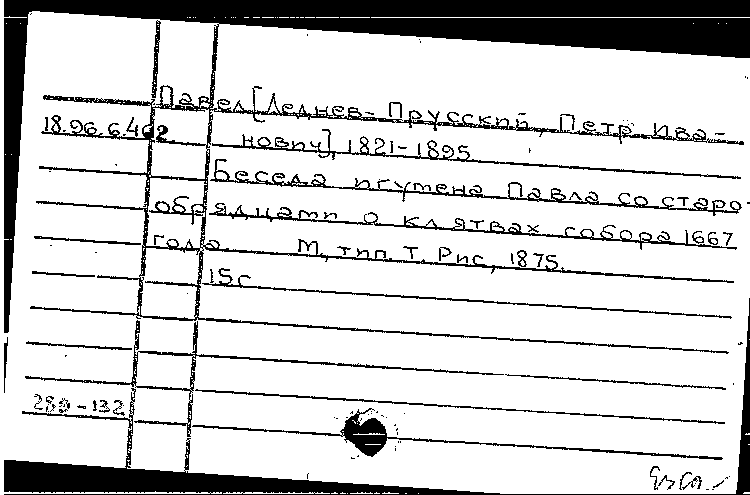 Павел [Леднев-Прусский, Петр Ива-
18.96.6.462 нович], 1821-1895
Беседа игумена Павла со старо-
обрядцами о клятвах собора 1667
года. М., тип. Т. Рис, 1875.
15с
289-132